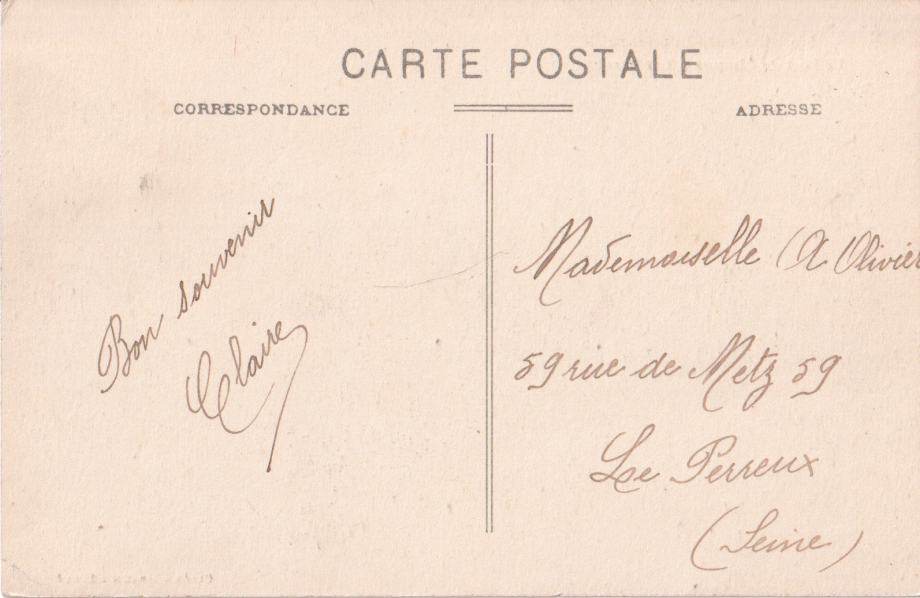 CARTE POSTALE
CORRESPONDANCE
ADRESSE
Bon souvenir
Claire
Mademoiselle A Olivier
59 rue de Metz 59
Le Perreux
(Seine)